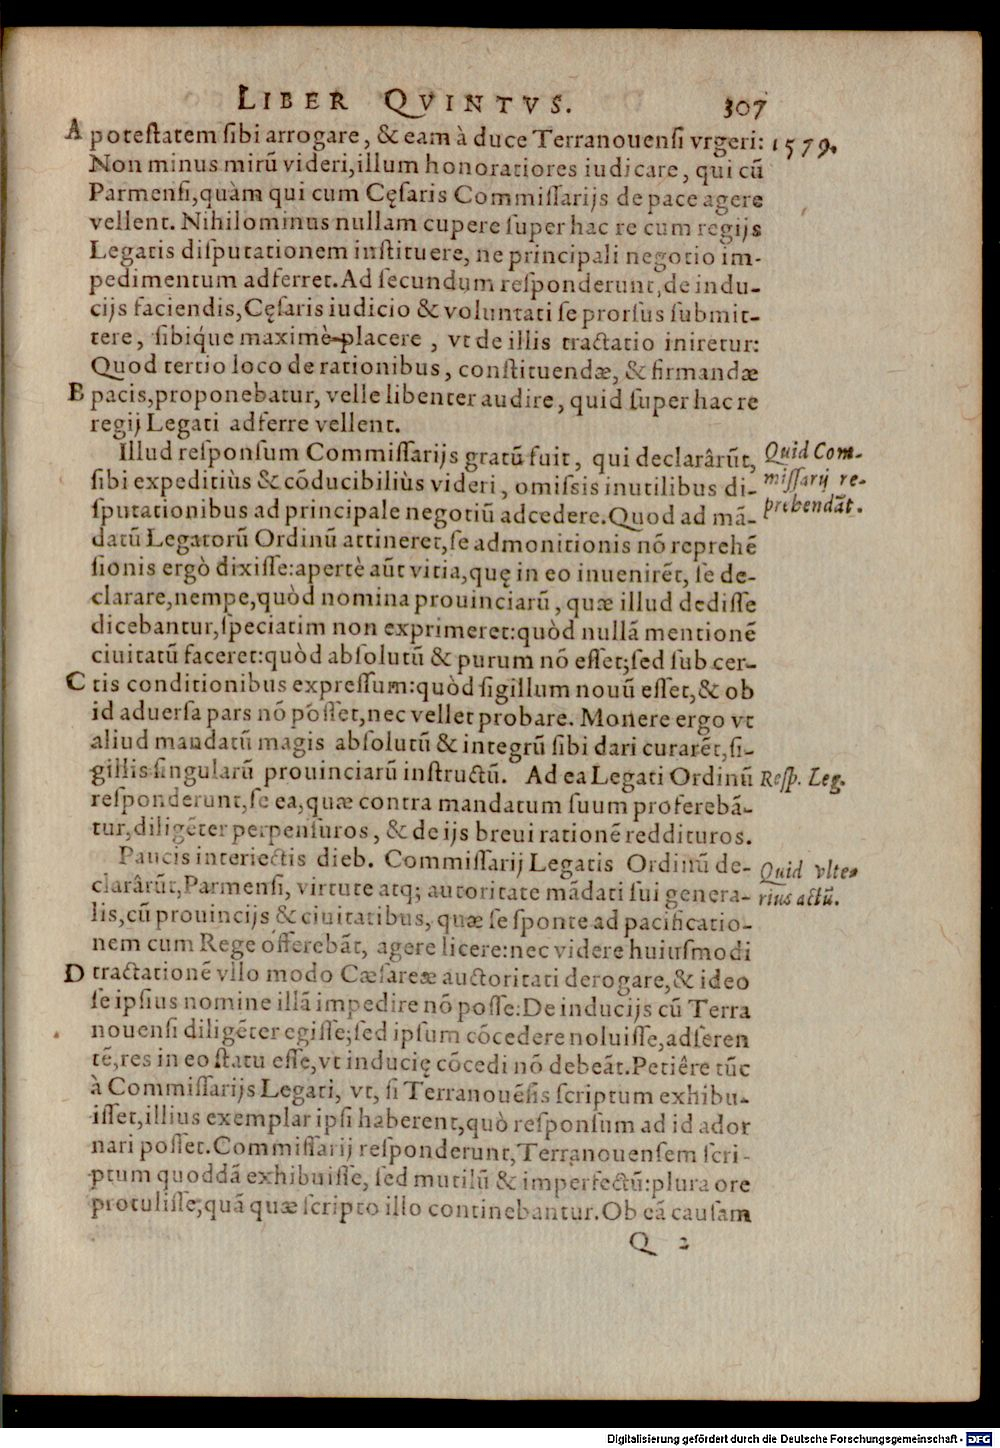 LIBER QVINTVS. 307
A poteſtatem ſibi arrogare, & eam à duce Terranouenſi vrgeri: 1579.
Non minus mirū videri, illum honoratiores iudicare, qui cū
Parmenſi, quàm qui cum Cęſaris Commiſſarijs de pace agere
vellent. Nihilominus nullam cupere ſuper hac re cum regijs
Legatis diſputationem inſtituere, ne principali negotio im-
pedimentum adferret. Ad ſecundum reſponderunt, de indu-
cijs faciendis, Cęſaris iudicio & voluntati ſe prorſus ſubmit-
tere, ſibiq́ue maximè placere, vt de illis tractatio iniretur:
Quod tertio loco de rationibus, conſtituendæ, & firmandæ
B pacis, proponebatur, velle libenter audire, quid ſuper hac re
regij Legati adferre vellent.
Illud reſponſum Commiſſarijs gratū fuit, qui declarârūt, Quid Com-
ſibi expeditiùs & cōducibiliùs videri, omiſsis inutilibus di- miſſarij re-
ſputationibus ad principale negotiū adcedere. Quod ad mā- prehendāt.
datū Legatorū Ordinū attineret, ſe admonitionis nō reprehē
ſionis ergò dixiſſe: apertè aūt vitia, quę in eo inuenirēt, ſe de-
clarare, nempe, quòd nomina prouinciarū, quæ illud dediſſe
dicebantur, ſpeciatim non exprimeret: quòd nullā mentionē
ciuitatū faceret: quòd abſolutū & purum nō eſſet; ſed ſub cer-
C tis conditionibus expreſſum: quòd ſigillum nouū eſſet, & ob
id aduerſa pars nō poſſet, nec vellet probare. Monere ergo vt
aliud mandatū magis abſolutū & integrū ſibi dari curarēt, ſi-
gillis ſingularū prouinciarū inſtructū. Ad ea Legati Ordinū Reſp. Leg.
reſponderunt, ſe ea, quæ contra mandatum ſuum proferebā-
tur, diligēter perpenſuros, & de ijs breui rationē reddituros.
Paucis interiectis dieb. Commiſſarij Legatis Ordinū de- Quid vlte-
clarârūt, Parmenſi, virtute atq; autoritate mādati ſui genera- rius actū.
lis, cū prouincijs & ciuitatibus, quæ ſe ſponte ad pacificatio-
nem cum Rege offerebāt, agere licere: nec videre huiuſmodi
D tractationē vllo modo Cæſareæ auctoritati derogare, & ideo
ſe ipſius nomine illā impedire nō poſſe: De inducijs cū Terra
nouenſi diligēter egiſſe; ſed ipſum cōcedere noluiſſe, adſeren
tē, res in eo ſtatu eſſe, vt inducię cōcedi nō debeāt. Petiêre tūc
à Commiſſarijs Legati, vt, ſi Terranouēſis ſcriptum exhibu-
iſſet, illius exemplar ipſi haberent, quò reſponſum ad id ador
nari poſſet. Commiſſarij reſponderunt, Terranouenſem ſcri-
ptum quoddā exhibuiſſe, ſed mutilū & imperfectū: plura ore
protuliſſe, quā quæ ſcripto illo continebantur. Ob eā cauſam
Q 2
Digitalisierung gefördert durch die Deutsche Forschungsgemeinschaft - DFG